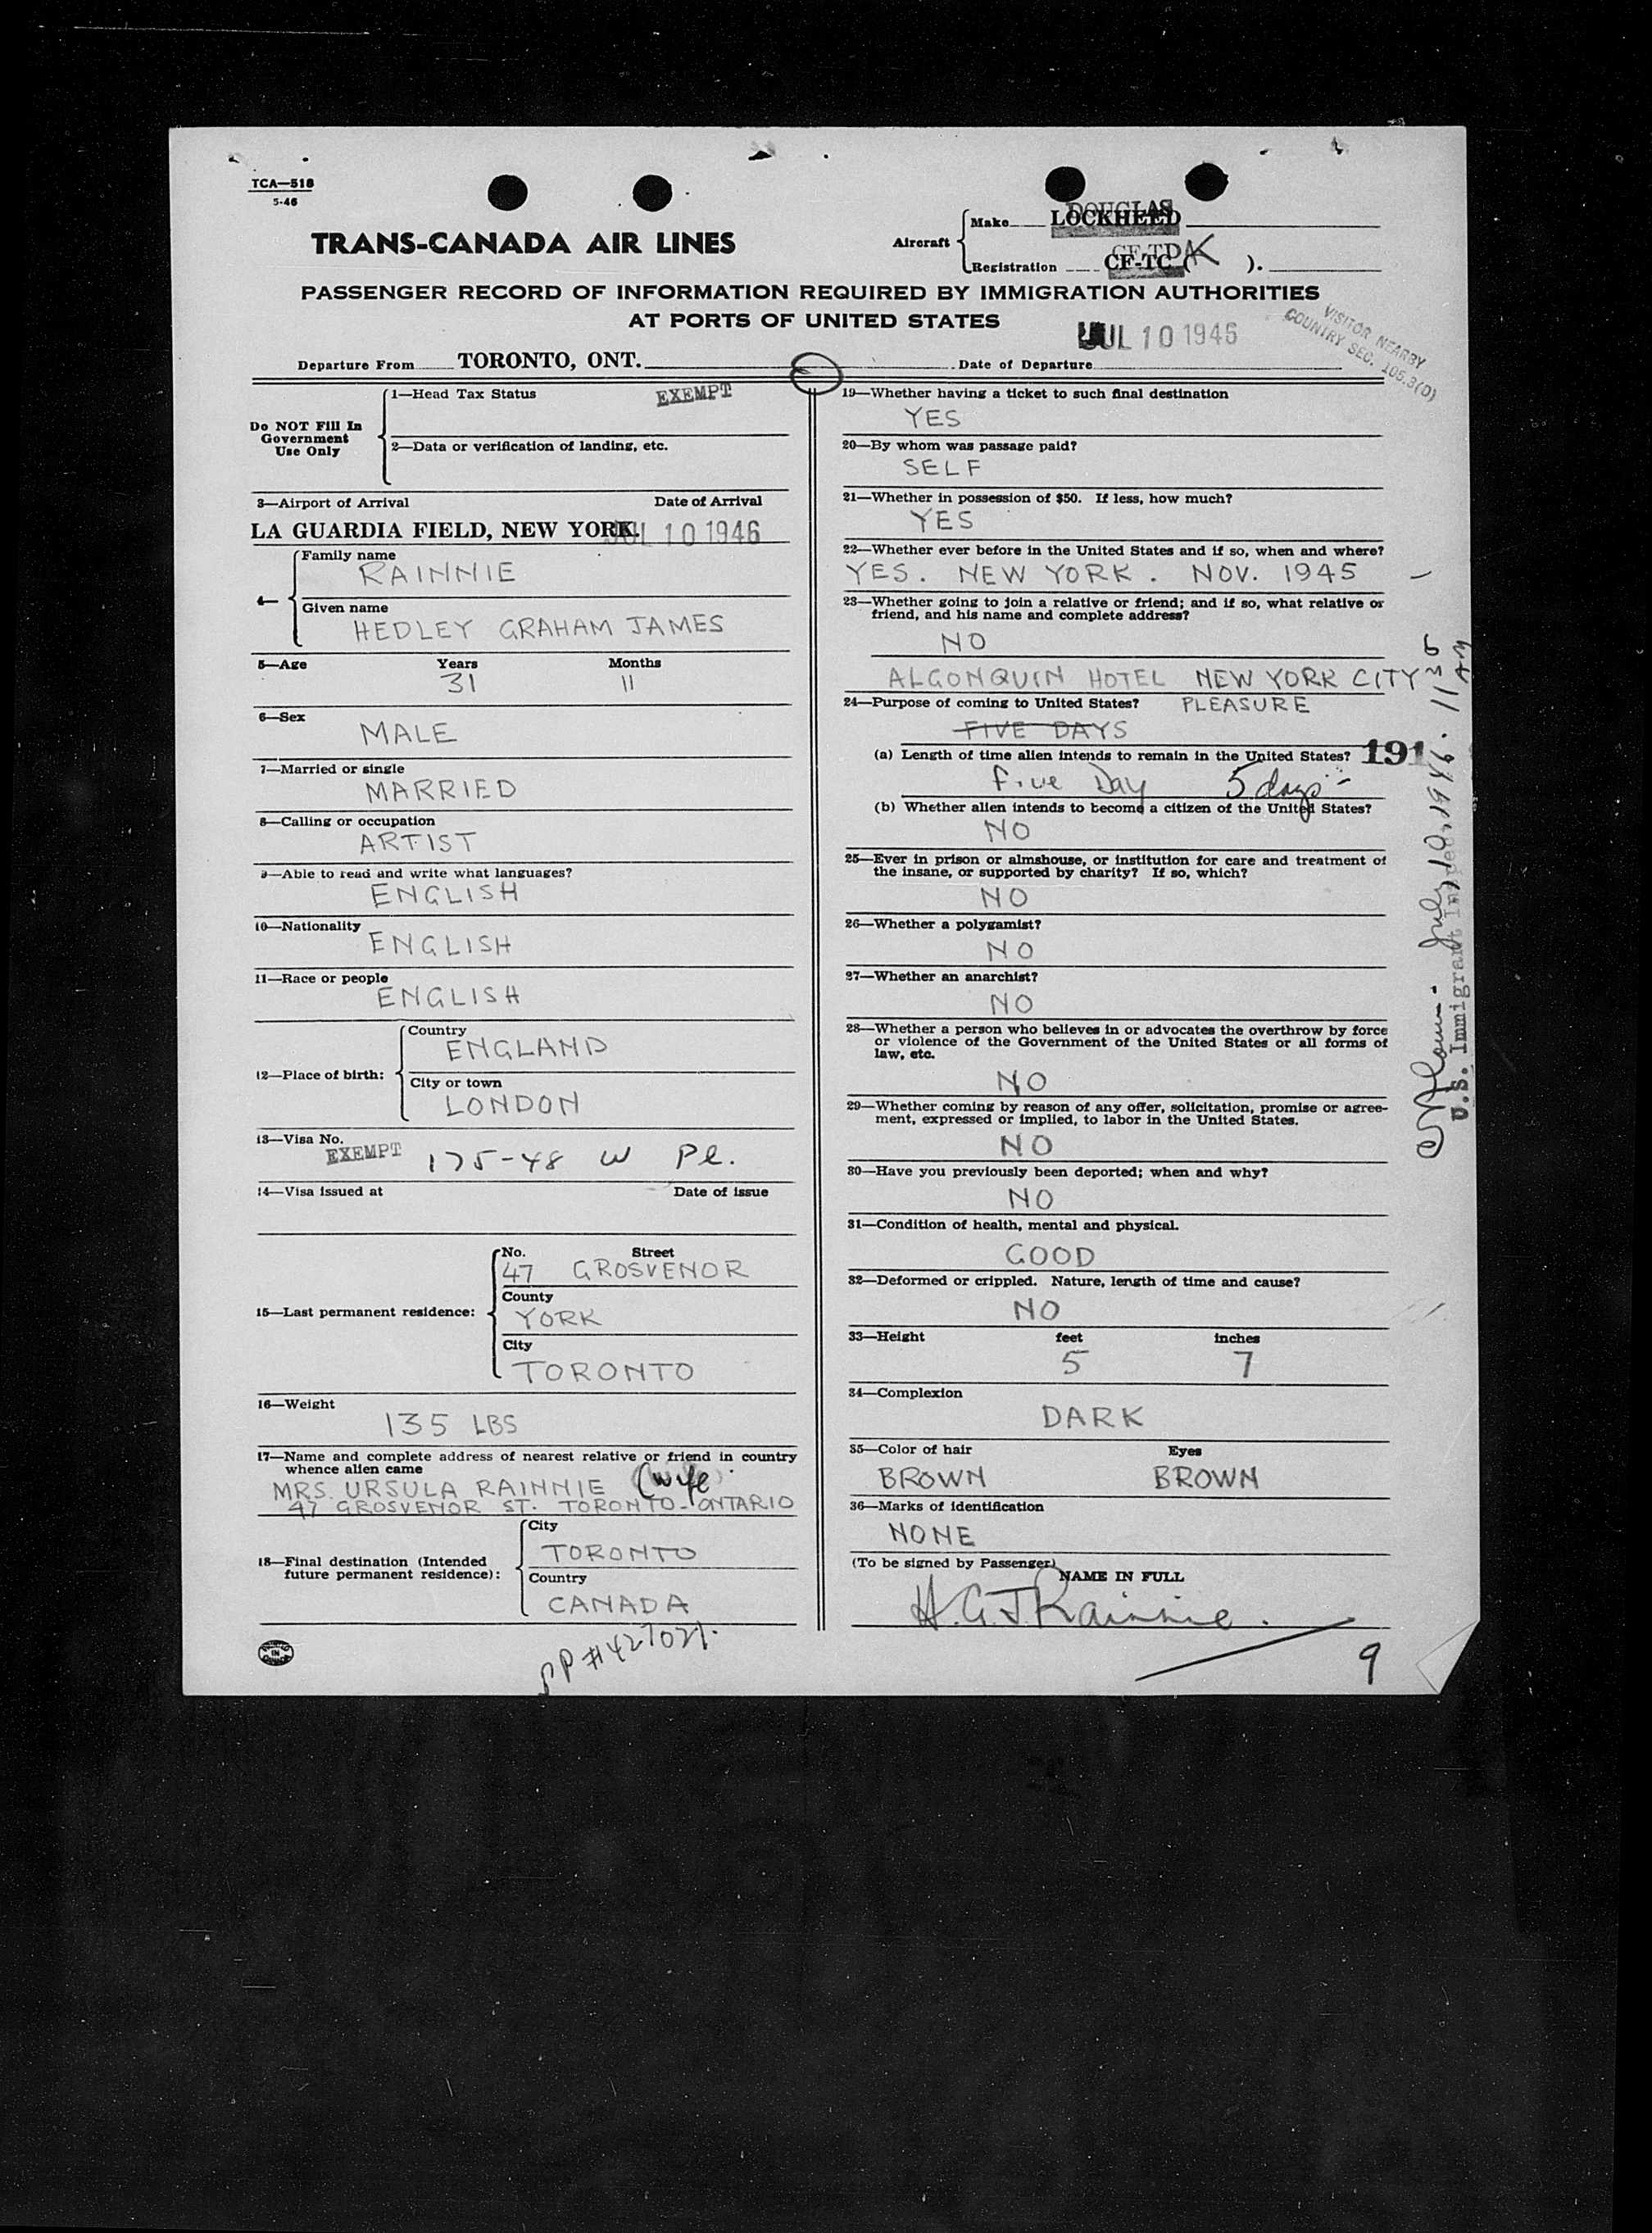 TCA—518
5-46
TRANS-CANADA AIR LINES
Aircraft
Make LOCKHEED DOUGLAS
Registration CF-TC ( K ).
PASSENGER RECORD OF INFORMATION REQUIRED BY IMMIGRATION AUTHORITIES
AT PORTS OF UNITED STATES
JUL 10 1946
VISITOR NEARBY
COUNTRY SEC. 105.3(D)
Departure From TORONTO, ONT. Date of Departure
Do NOT Fill In
Government
Use Only
1—Head Tax Status EXEMPT
2—Data or verification of landing, etc.
3—Airport of Arrival Date of Arrival
LA GUARDIA FIELD, NEW YORK. JUL 10 1946
4—
Family name
RAINNIE
Given name
HEDLEY GRAHAM JAMES
5—Age Years Months
31 11
6—Sex
MALE
7—Married or single
MARRIED
8—Calling or occupation
ARTIST
9—Able to read and write what languages?
ENGLISH
10—Nationality
ENGLISH
11—Race or people
ENGLISH
12—Place of birth:
Country
ENGLAND
City or town
LONDON
13—Visa No.
EXEMPT 175-48 W Pl.
14—Visa issued at Date of issue
15—Last permanent residence:
No. Street
47 GROSVENOR
County
YORK
City
TORONTO
16—Weight
135 LBS
17—Name and complete address of nearest relative or friend in country
whence alien came
MRS. URSULA RAINNIE (wife
47 GROSVENOR ST. TORONTO-ONTARIO
18—Final destination (Intended
future permanent residence):
City
TORONTO
Country
CANADA
PP #427021.
19—Whether having a ticket to such final destination
YES
20—By whom was passage paid?
SELF
21—Whether in possession of $50. If less, how much?
YES
22—Whether ever before in the United States and if so, when and where?
YES. NEW YORK. NOV. 1945
23—Whether going to join a relative or friend; and if so, what relative or
friend, and his name and complete address?
NO
ALGONQUIN HOTEL NEW YORK CITY
24—Purpose of coming to United States? PLEASURE
FIVE DAYS
(a) Length of time alien intends to remain in the United States? 191
Five Day 5 days
(b) Whether alien intends to become a citizen of the United States?
NO
25—Ever in prison or almshouse, or institution for care and treatment of
the insane, or supported by charity? If so, which?
NO
26—Whether a polygamist?
NO
27—Whether an anarchist?
NO
28—Whether a person who believes in or advocates the overthrow by force
or violence of the Government of the United States or all forms of
law, etc.
NO
29—Whether coming by reason of any offer, solicitation, promise or agree-
ment, expressed or implied, to labor in the United States.
NO
30—Have you previously been deported; when and why?
NO
31—Condition of health, mental and physical.
GOOD
32—Deformed or crippled. Nature, length of time and cause?
NO
33—Height feet inches
5 7
34—Complexion
DARK
35—Color of hair Eyes
BROWN BROWN
36—Marks of identification
NONE
(To be signed by Passenger)
NAME IN FULL
H.G.J Rainnie.
9
July 10, 1946. 1135 AM
U.S. Immigrant